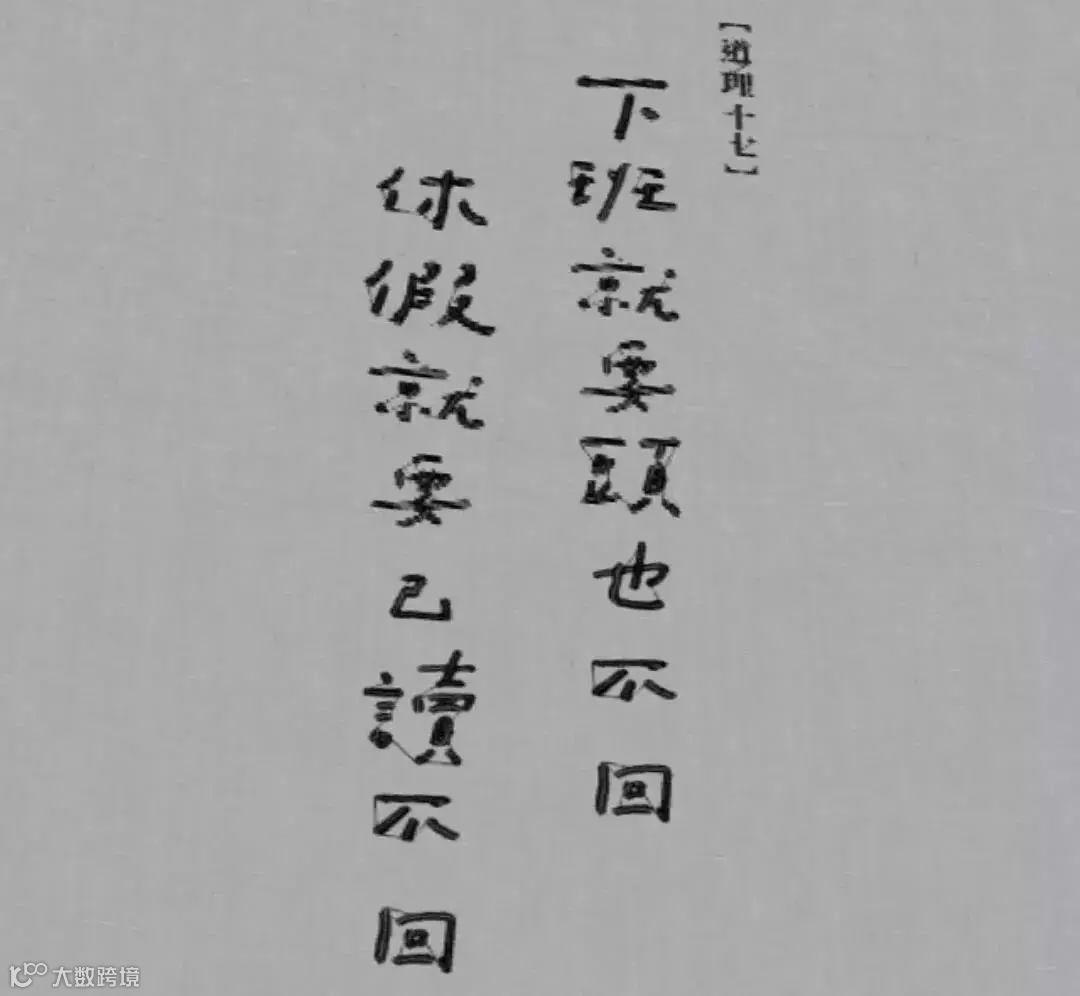 【道理十七】
下班就要頭也不回
休假就要已讀不回
大数跨境